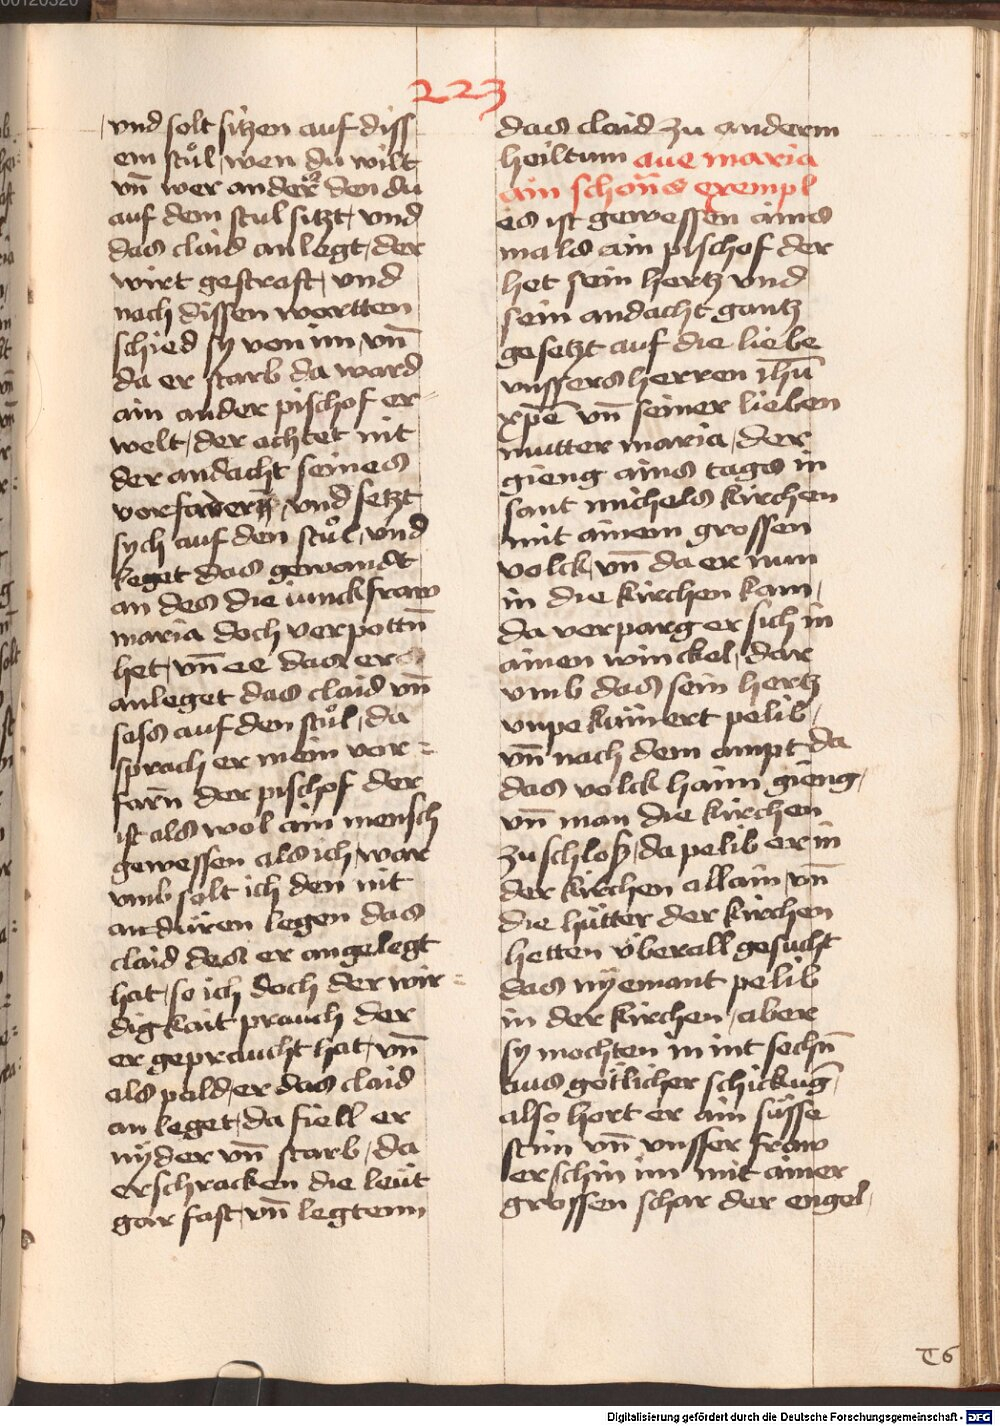 223
vnd solt sitzen auf diss
em stůl, wen du wilt
vn̄ wer ander den du
auf dem stul sitzt, vnd
das claid an legt, der
wirt gestraft, vnd
nach dissen wortten
schied sy von im, vn̄
da er starb da ward
ain ander pischof er-
welt, der achtet nit
der andacht seines
vnd setzt
sych auf den stůl, vnd
leget das gewandt
an des die iunckfraw
maria doch verpottn̄
het, vn̄ ee das er
anleget das claid vn̄
sass auf den stůl, da
sprach er mein vor=
farn̄ der pischof der
ist als wol ain mensch
gewessen als ich, war
vmb solt ich den nit
an düren legen das
claid des er angelegt
hat, so ich doch der wir=
digkait prauch der
er gepraucht hat, vn̄
als pald, er das claid
an leget, da fiell er
nÿder vn̄ starb, da
erschracken die leüt
gar fast, vn̄ legtenn
das claid zu anderm
heiltum aue maria
ain schon̄s exempl
es ist gewessen ains
mals ain pischof der
het sein hertz vnd
sein andacht gantz
gesetzt auf die liebe
vnssers herren ihū
xp̄e vn̄ seiner lieben
mutter maria, der
gieng ains tags in
sant michels kirchen
mit ainem grossen
volck, vn̄ da er nun
in die kirchen kam,
da verparg er sich in
ainen winckel, dar
vmb das sein hertz
vnpekümert pelib,
vn̄ nach dem ampt da
das volck haim gieng,
vn̄ man die kirchen
zu schloß, da pelib er in
der kirchen allain, vn̄
die hütter der kirchen
hetten v̈berall gesucht
das nÿemant pelib
in der kirchen, aber
sy mochten in nit sechn̄
aus gotlicher schickuḡ,
also hort er ain süsse
stim vn̄ vnsser fraw
erschin im mit ainer
grossen schar der engel,
T6
00120320
Digitalisierung gefördert durch die Deutsche Forschungsgemeinschaft - DFG